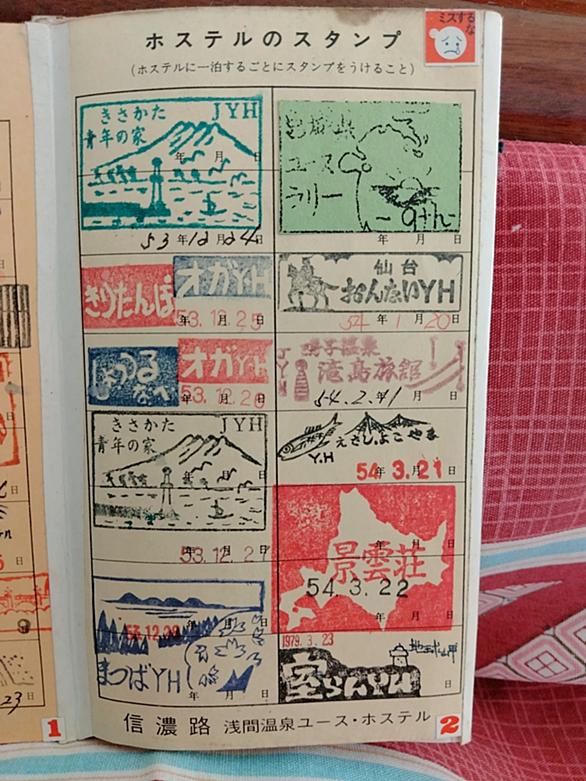 ホステルのスタンプ
ミスするな
(ホステルに一泊するごとにスタンプをうけること)
きさかた JYH
青年の家
年 月
53年12月24日
ユース
ラリー
9th
年 月 日
きりたんぽ オガYH
53.12.25
仙台
おんないYH
54年1月20日
しょっつるなべ オガYH
53.12.26
滝島旅館
54.2.11
きさかた JYH
青年の家
53.12.27
えさしよこやま
Y.H
54.3.21
景雲荘
54.3.22
まつばYH
1979.3.23
地球岬
室らんYH
信濃路 浅間温泉ユース・ホステル
1
2
23